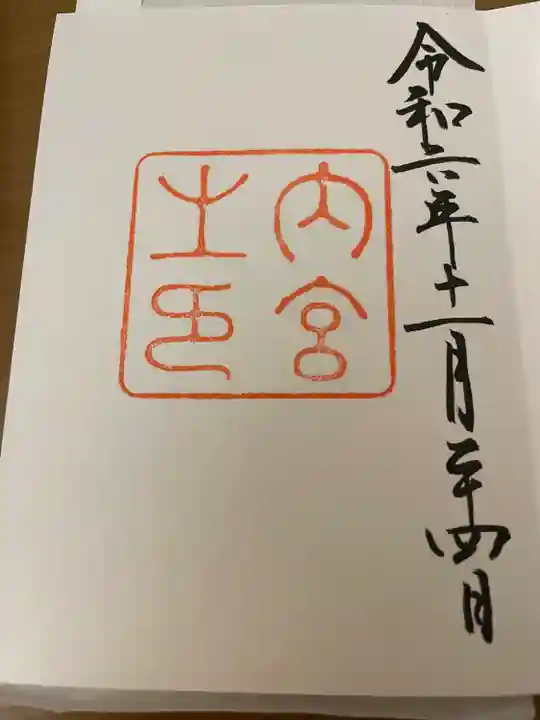 令和六年十一月二十四日
内宮
之印